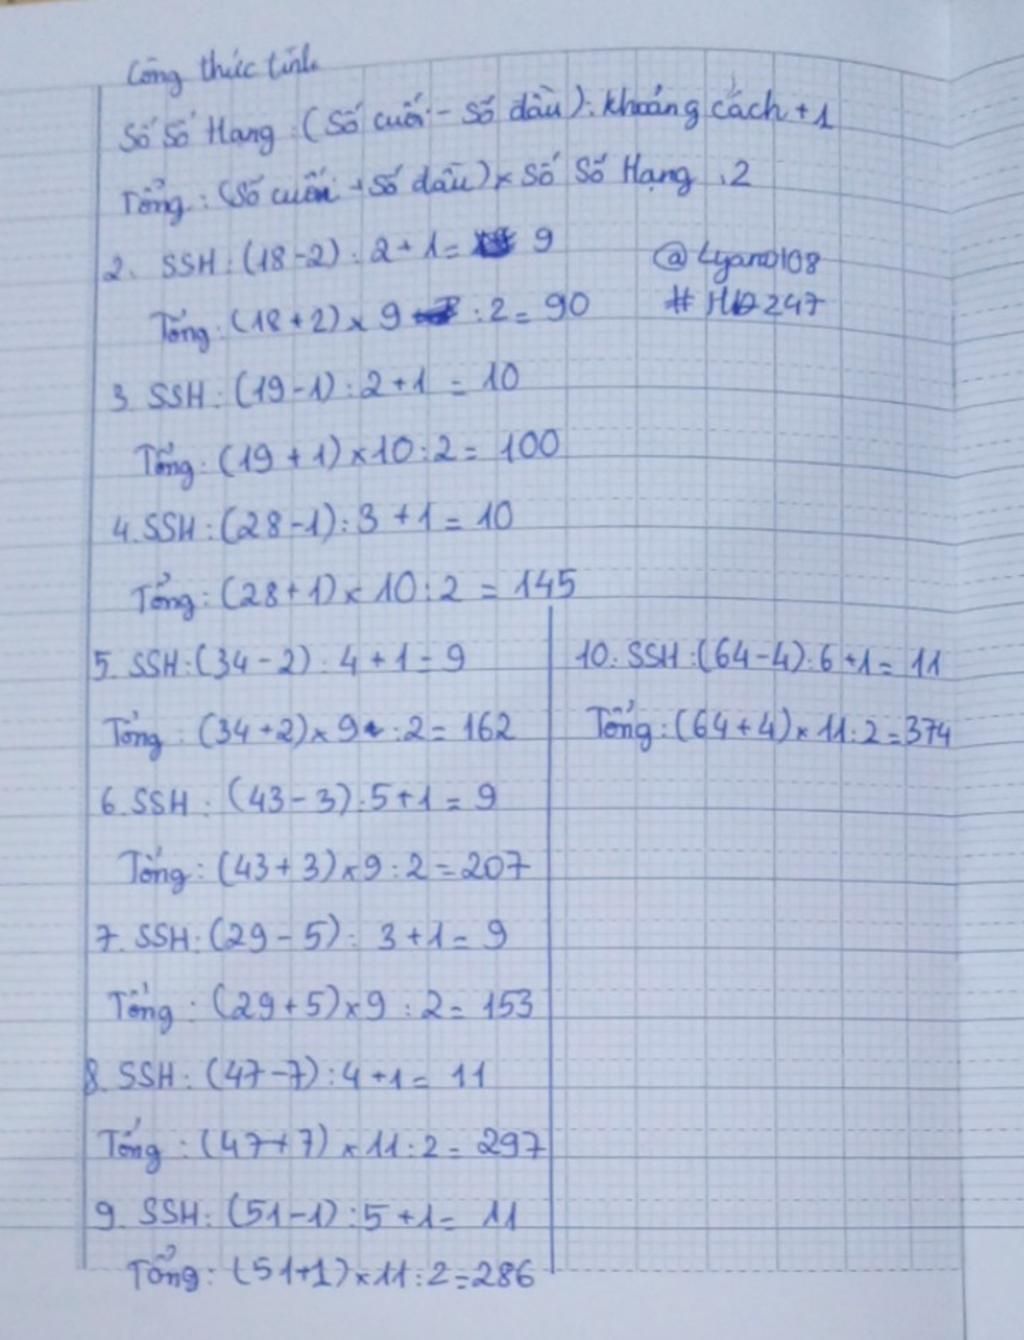 Công thức tính
Số Số Hạng : (Số cuối - Số đầu) : khoảng cách + 1
Tổng : (Số cuối + Số đầu) x Số Số Hạng : 2
2. SSH : (18 - 2) : 2 + 1 = 9
@Lyano108
Tổng : (18 + 2) x 9 : 2 = 90
3. SSH : (19 - 1) : 2 + 1 = 10
Tổng : (19 + 1) x 10 : 2 = 100
4. SSH : (28 - 1) : 3 + 1 = 10
Tổng : (28 + 1) x 10 : 2 = 145
5. SSH : (34 - 2) : 4 + 1 = 9
Tổng : (34 + 2) x 9 : 2 = 162
6. SSH : (43 - 3) : 5 + 1 = 9
Tổng : (43 + 3) x 9 : 2 = 207
7. SSH : (29 - 5) : 3 + 1 = 9
Tổng : (29 + 5) x 9 : 2 = 153
8. SSH : (47 - 7) : 4 + 1 = 11
Tổng : (47 + 7) x 11 : 2 = 297
9. SSH : (51 - 1) : 5 + 1 = 11
Tổng : (51 + 1) x 11 : 2 = 286
10. SSH : (64 - 4) : 6 + 1 = 11
Tổng : (64 + 4) x 11 : 2 = 374